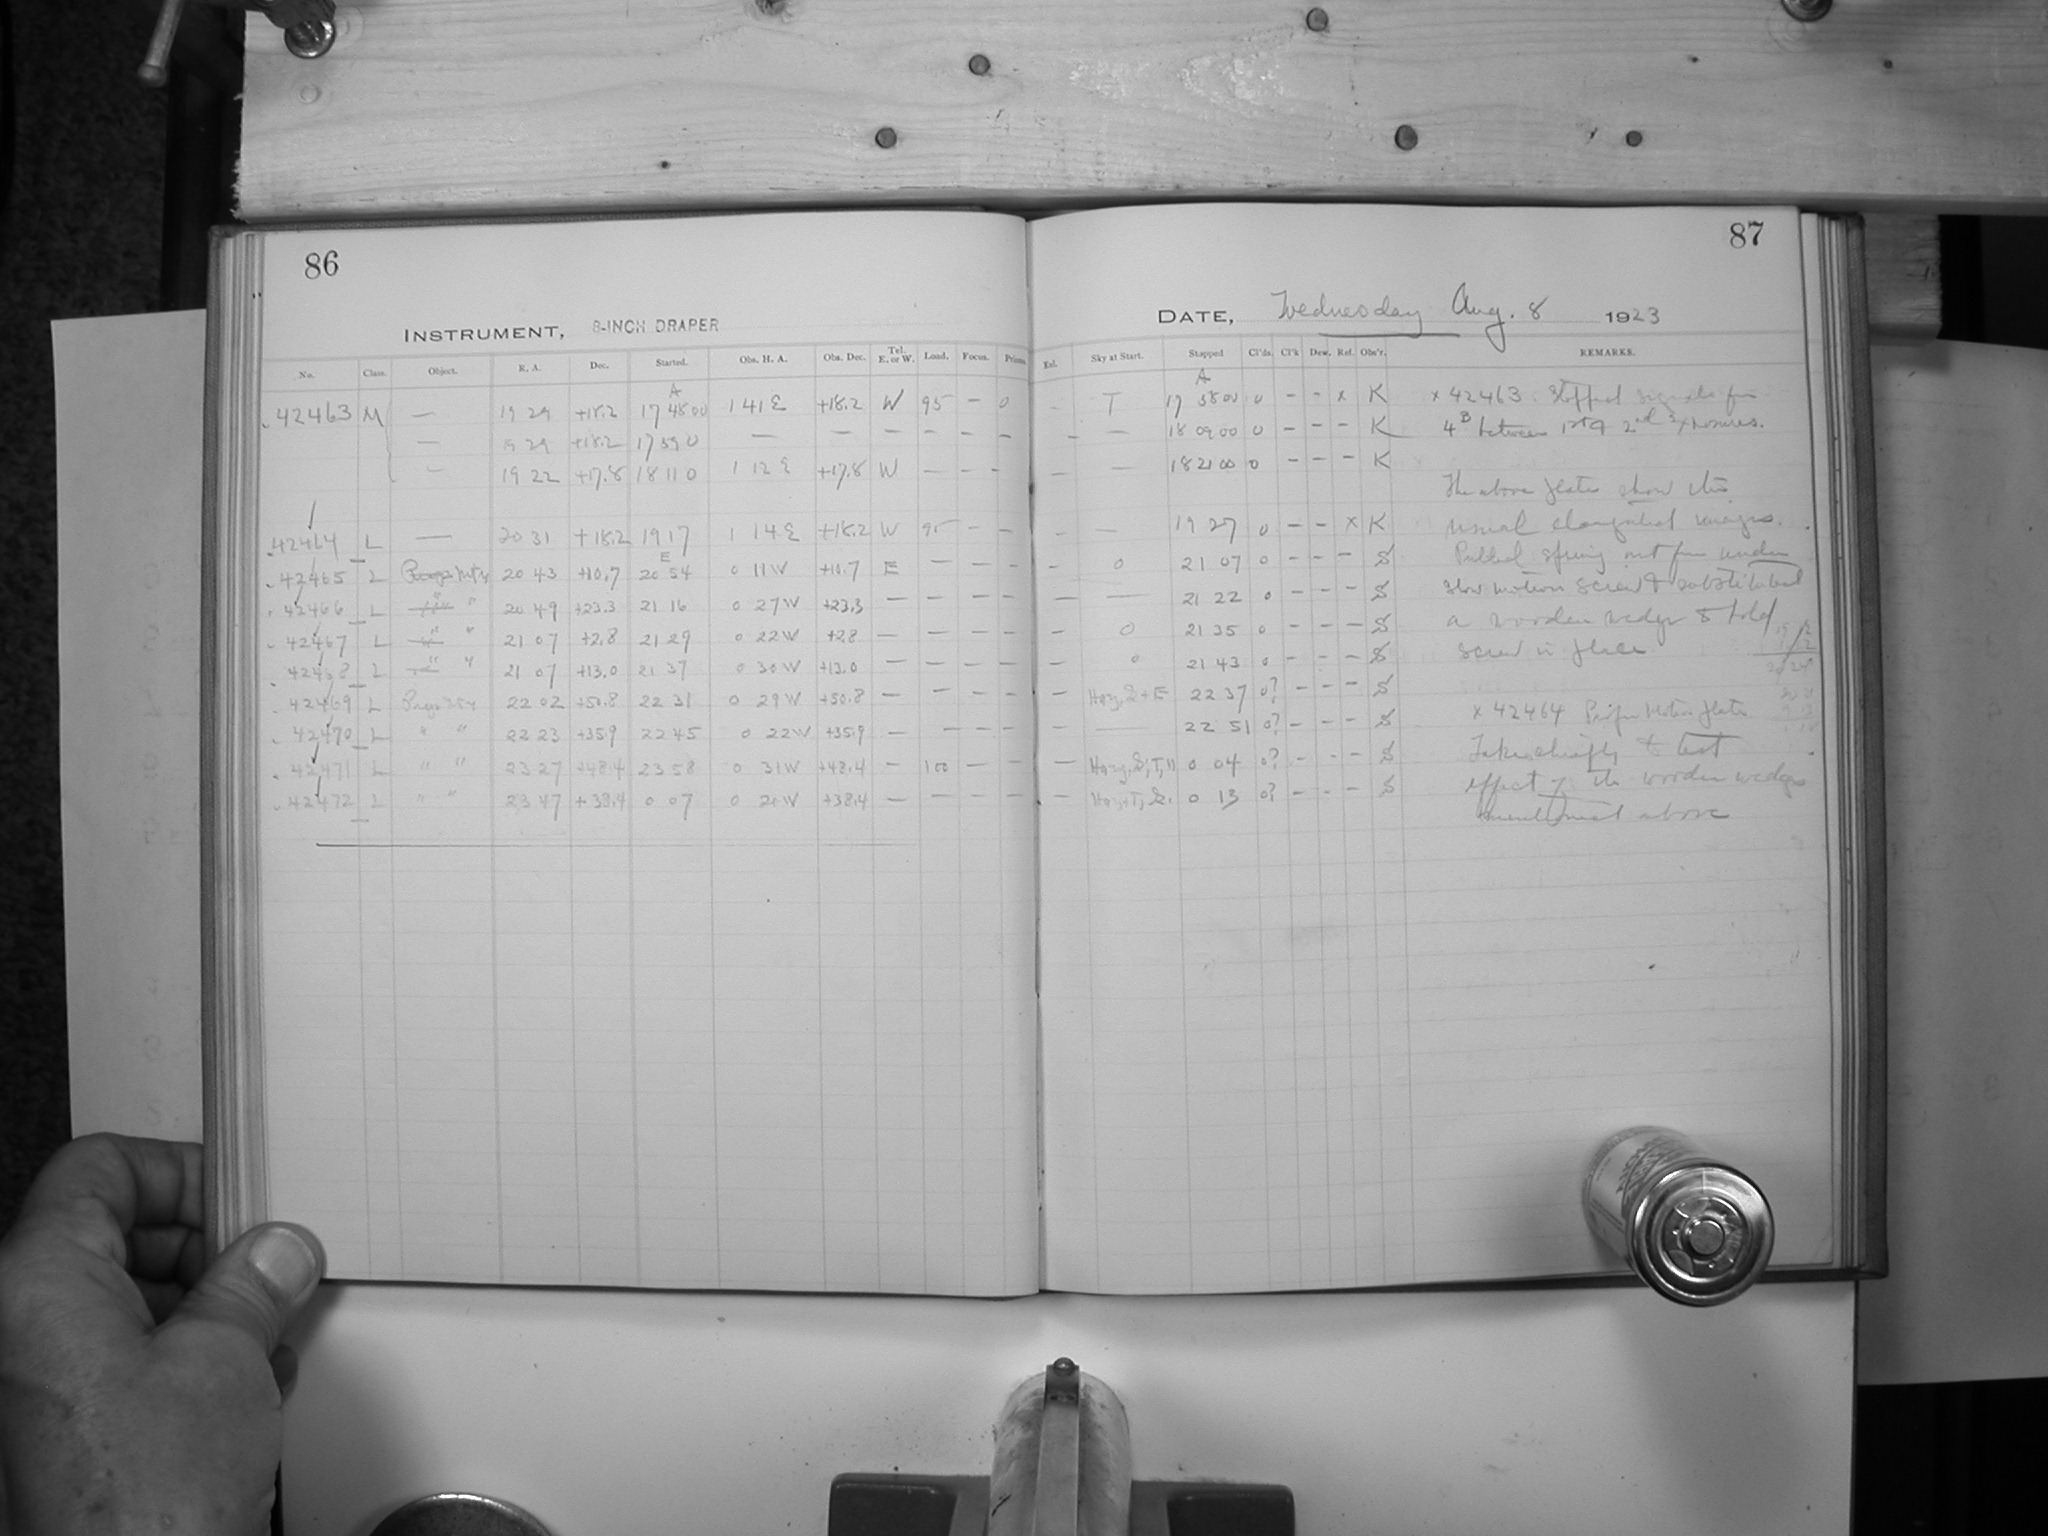 86
INSTRUMENT, 8-INCH DRAPER
No. Class. Object. R. A. Dec. Started. Obs. H. A. Obs. Dec. Tel. E. or W. Load. Focus. Prisms
A
42463 M — 19 29 +18.2 17 48 00 1 41 E +18.2 W 95 – 0
— 19 29 +18.2 17 59 0 — — — — — —
— 19 22 +17.8 18 11 0 1 12 E +17.8 W — — –
42464 L — 20 31 +18.2 19 17 1 14 E +18.2 W 95 – –
E
42465 L 20 43 +10.7 20 54 0 11 W +10.7 E — — —
42466 L " 20 49 +23.3 21 16 0 27 W +23.3 — — — —
42467 L " " 21 07 +2.8 21 29 0 22 W +2.8 — — — —
42468 L " " 21 07 +13.0 21 37 0 30 W +13.0 — — — —
42469 L 22 02 +50.8 22 31 0 29 W +50.8 — — — —
42470 L " " 22 23 +35.9 22 45 0 22 W +35.9 — — — —
42471 L " " 23 27 +48.4 23 58 0 31 W +48.4 — 100 — —
42472 L " " 23 47 +38.4 0 07 0 20 W +38.4 — — — —
87
DATE, Wednesday Aug. 8 1923
Exl. Sky at Start. Stopped Cl'ds. Cl'k Dew. Ref. Obs'r. REMARKS.
A
– T 17 58 00 0 – – x K x 42463 : Stopped signals for
– — 18 09 00 0 – – – K 4 B between 1st & 2nd exposures.
– — 18 21 00 0 – – – K
The above plates show the
– — 19 27 0 – – x K usual elongated images.
– 0 21 07 0 – – – S Pulled spring out from under
– — 21 22 0 – – – S slow motion screw & substituted
– 0 21 35 0 – – – S a wooden wedge to hold
– 0 21 43 0 – – – S screw in place
– Hazy, S+E 22 37 0? – – – S
– — 22 51 0? – – – S x 42464 Proper Motion plate
– 0 04 0? – – – S Taken chiefly to test
– 0 13 0? – – – S effect of the wooden wedge
mentioned above